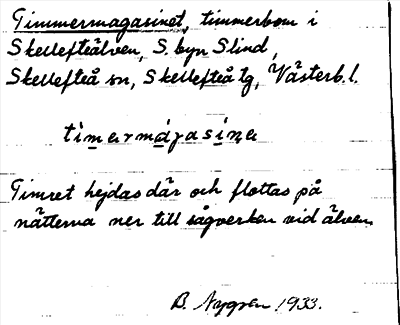 Timmermagasinet, timmerbom i
Skellefteälven, S. byn Slind,
Skellefteå sn, Skellefteå tg, Västerb. l.
timərmágasinə
Timret hejdas där och flottas på
nätterna ner till sågverken vid älven.
B. Nygren 1933.